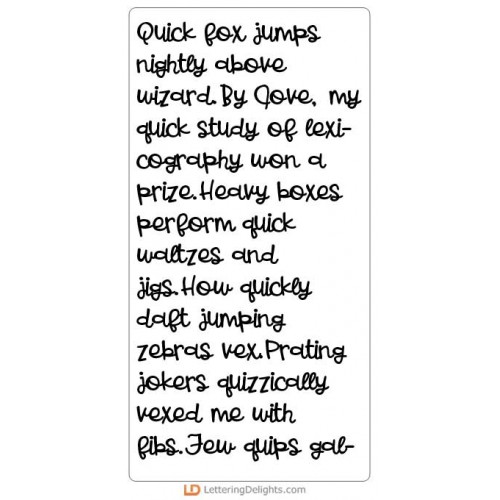 Quick fox jumps
nightly above
wizard.By Jove, my
quick study of lexi-
cography won a
prize.Heavy boxes
perform quick
waltzes and
jigs.How quickly
daft jumping
zebras vex.Prating
jokers quizzically
vexed me with
fibs.Few quips gab-
LD LetteringDelights.com